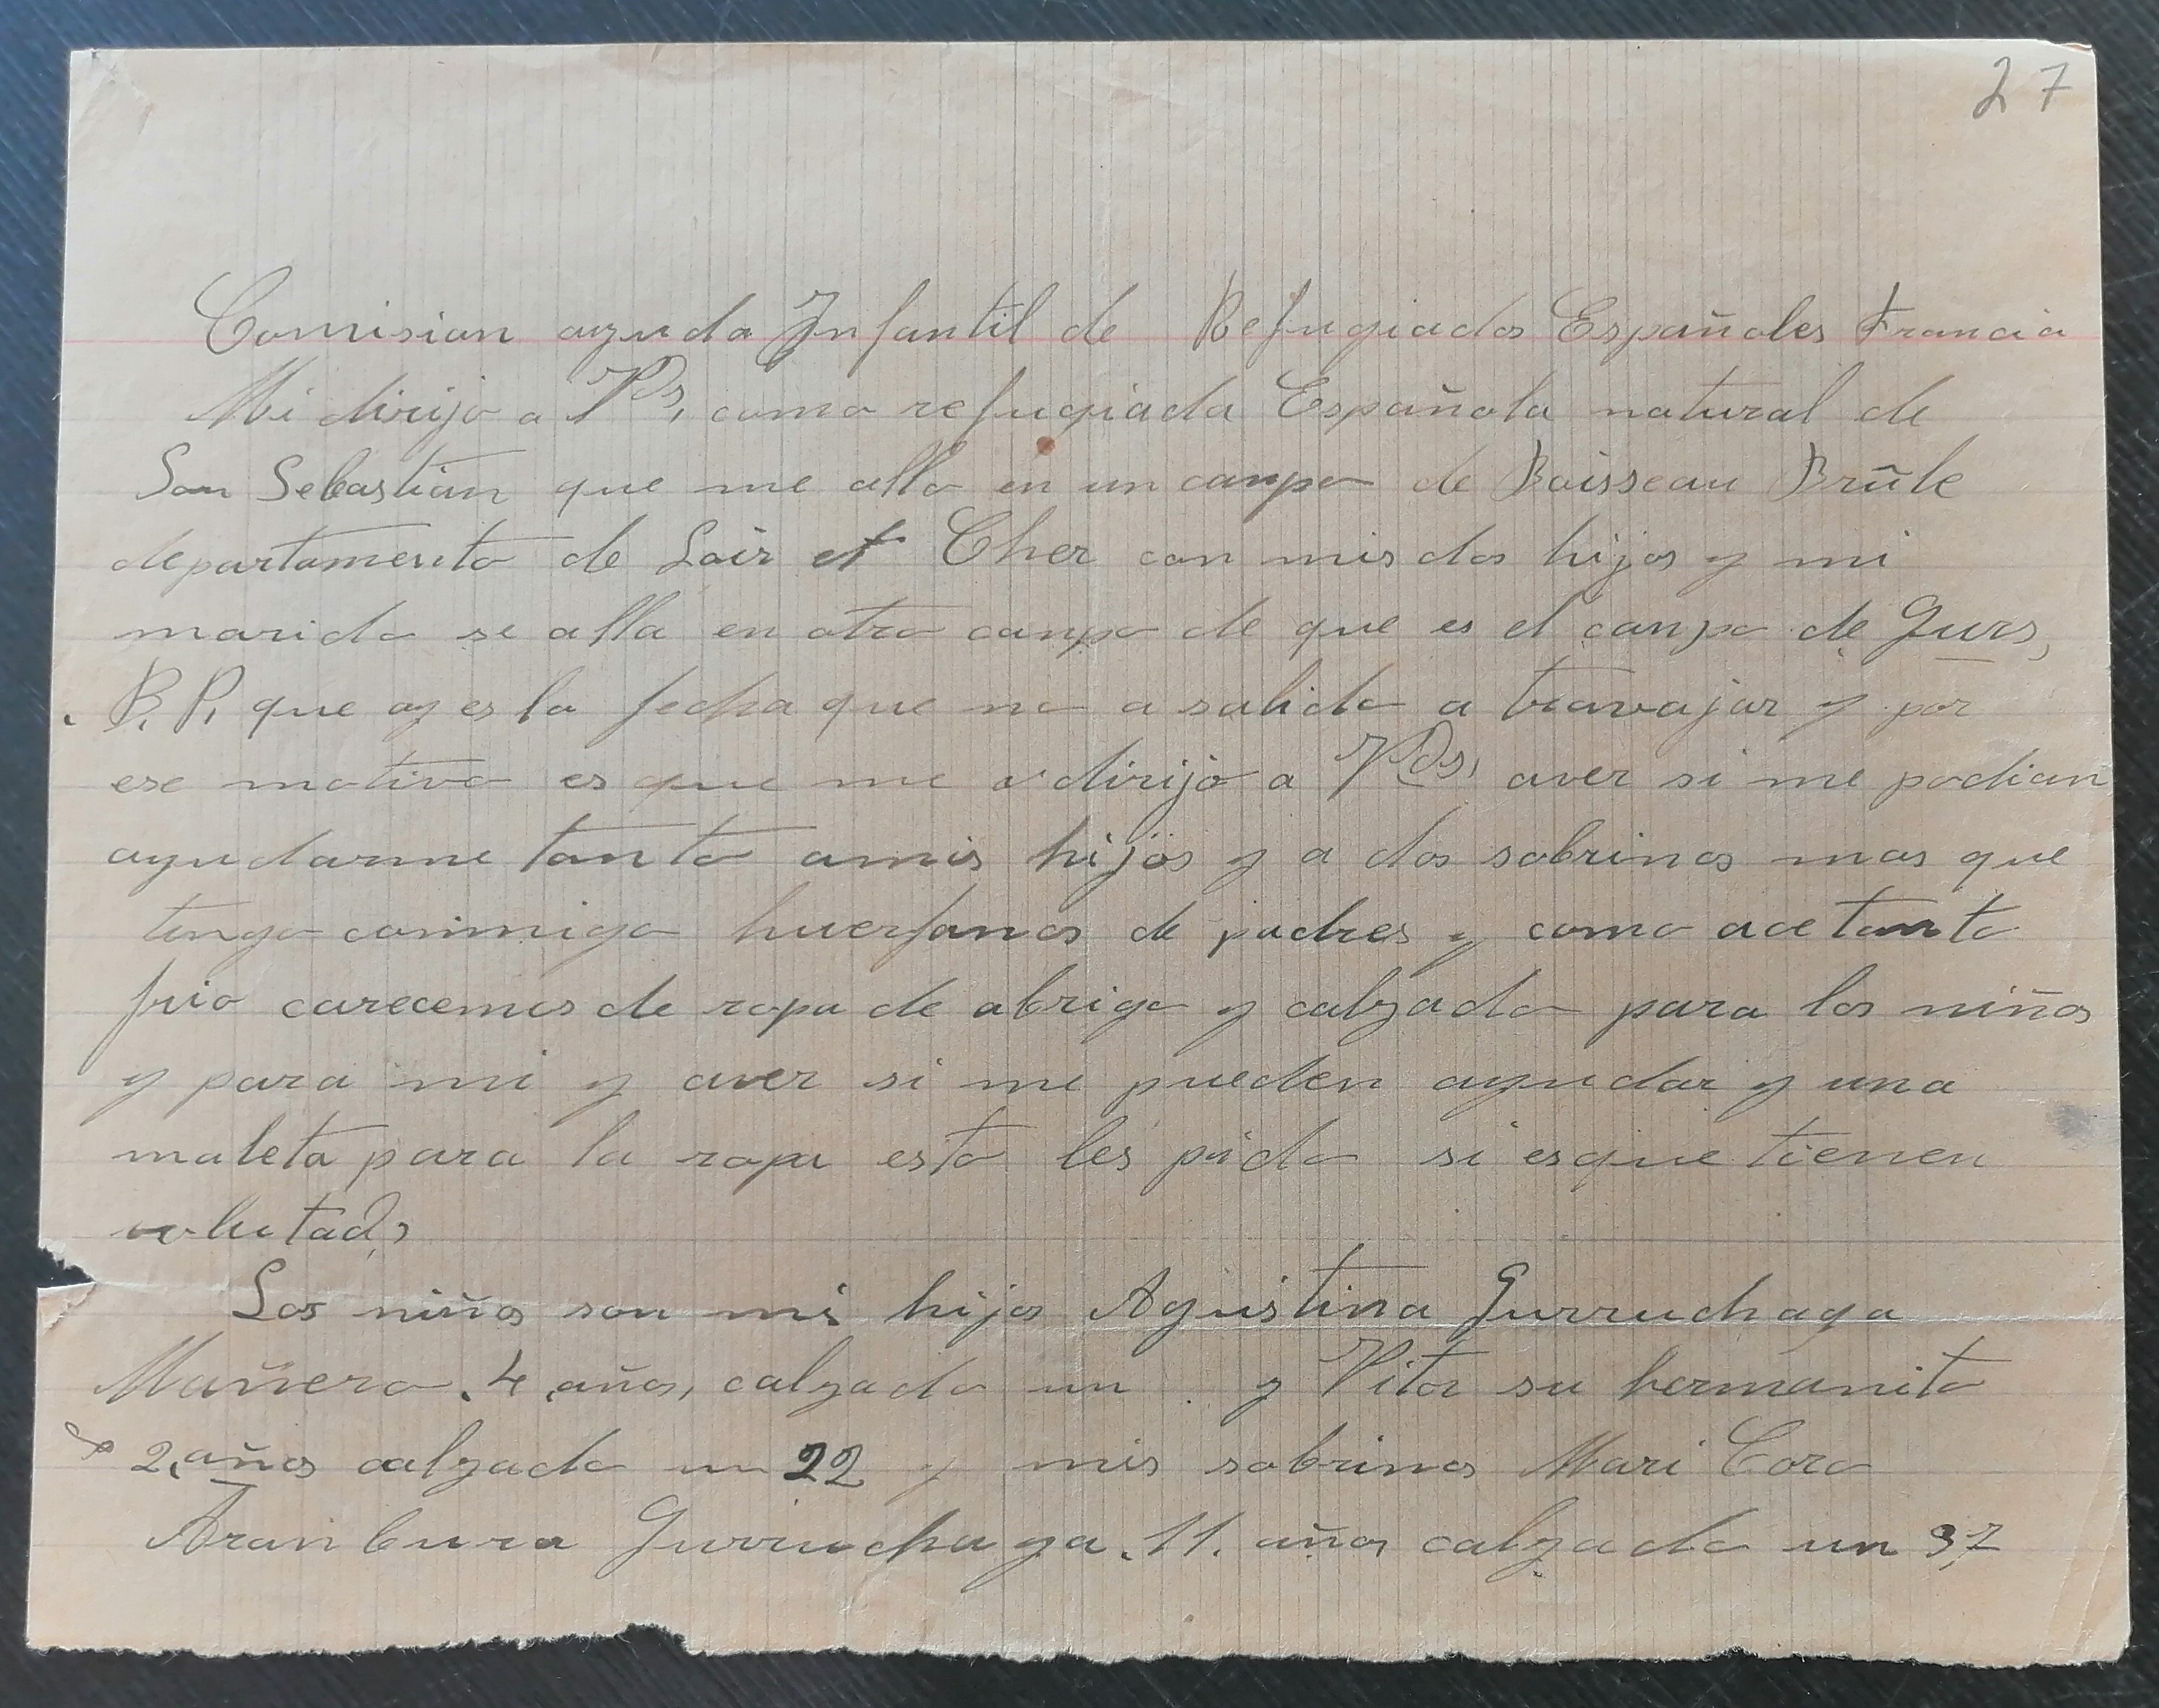 27
Comision ayuda Infantil de Refugiados Españoles Francia
Mi dirijo a Vds, como refugiada Española natural de
San Sebastian que me allo en un canpo de Boisseau Brûle
departamento de Loir et Cher con mis dos hijos y mi
marido se alla en otro canpo de que es el canpo de Gurs,
B. P. que oy es la fecha que no a salido a travajar y por
ese motivo es que me dirijo a Vds, aver si me podian
ayudarme tanto amis hijos y a dos sobrinos mas que
tengo conmigo huerfanos de padres y como ace tanto
frio carecemos de ropa de abrigo y calzado para los niños
y para mi y aver si me pueden ayudar y una
maleta para la ropa esto les pido si es que tienen
volutad,
Los niños son mis hijos Agustina Gurruchaga
Mañero. 4 años, calzado un y Vitor su hermanito
2 años calzado un 22 y mis sobrinos Mari Coro
Aranburu Gurruchaga. 11. años calzado un 37